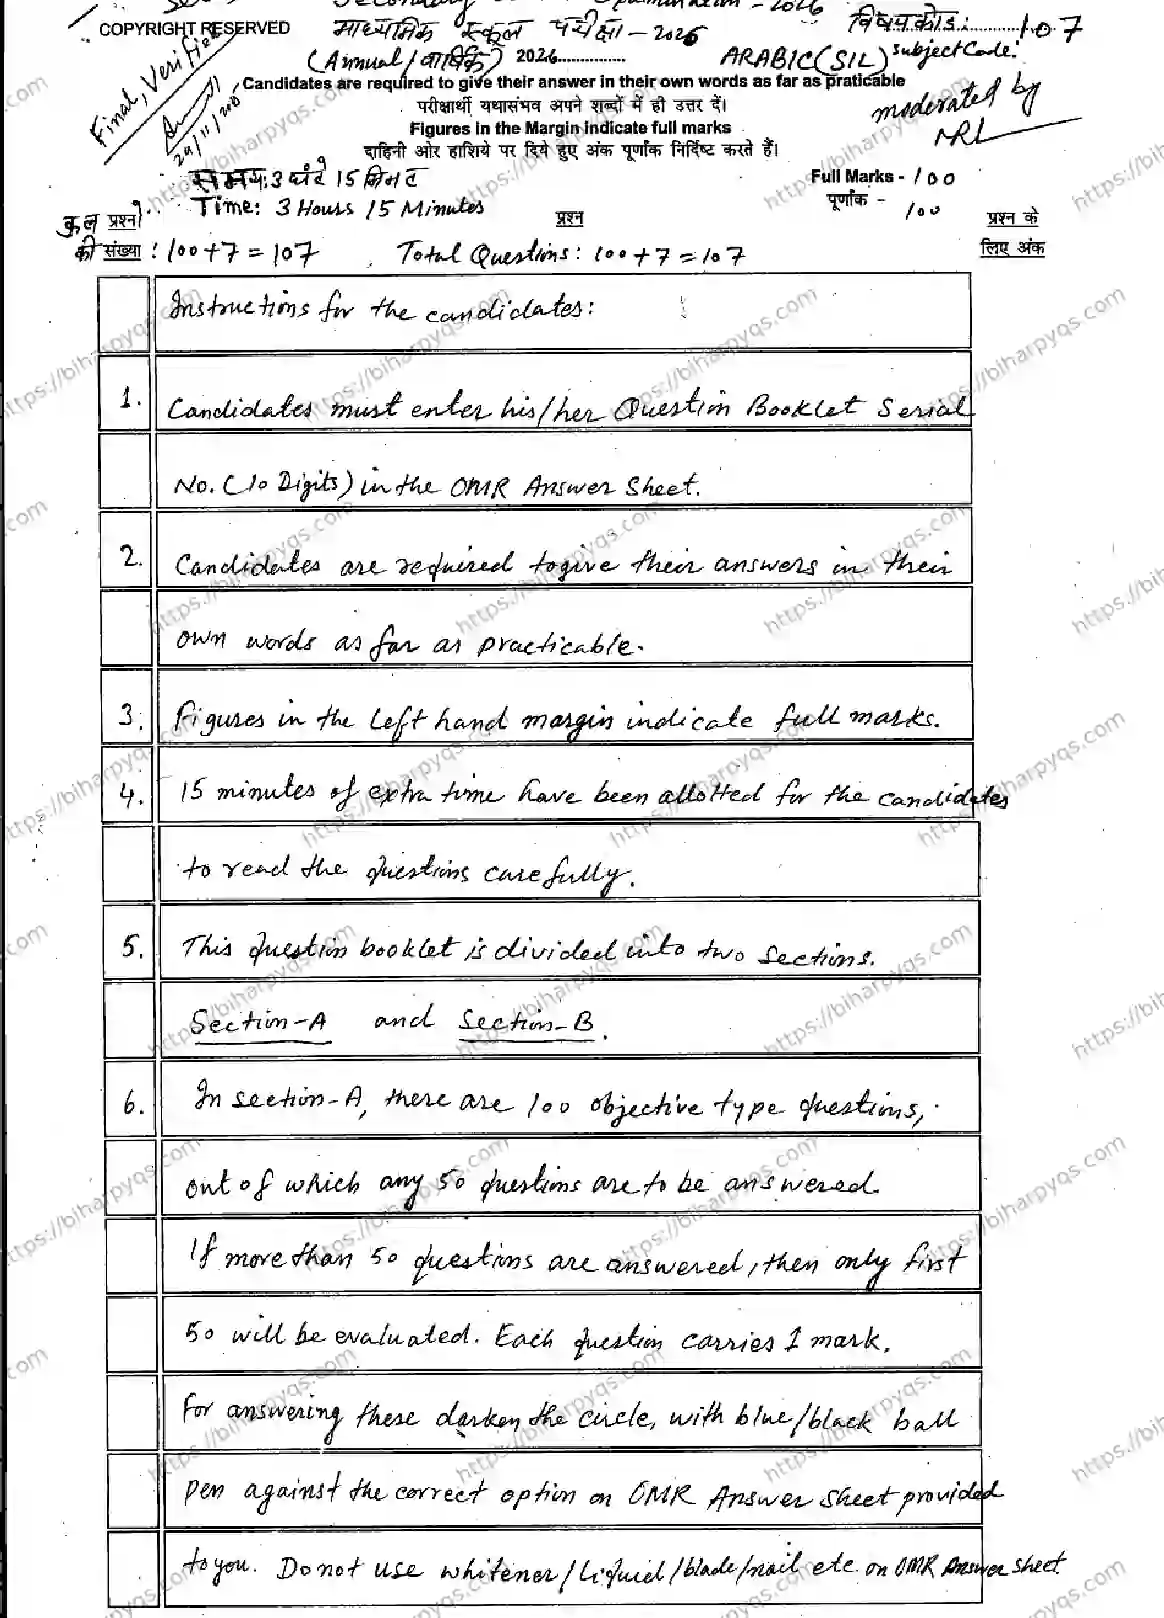 Secondary Examination - 2026
COPYRIGHT RESERVED माध्यमिक स्कूल परीक्षा - 2026 विषय कोड: 107
(Annual / वार्षिक) 2026............... ARABIC (SIL) Subject Code:
Final, Verified
Candidates are required to give their answer in their own words as far as praticable
परीक्षार्थी यथासंभव अपने शब्दों में ही उत्तर दें।
moderated by
Figures in the Margin indicate full marks
दाहिनी ओर हाशिये पर दिये हुए अंक पूर्णांक निर्दिष्ट करते हैं।
समय: 3 घंटे 15 मिनट Full Marks - 100
Time: 3 Hours 15 Minutes पूर्णांक - 100
कुल प्रश्नों प्रश्न प्रश्न के
की संख्या : 100+7 = 107 Total Questions: 100+7 = 107 लिए अंक
Instructions for the candidates:
1. Candidates must enter his/her Question Booklet Serial
No. (10 Digits) in the OMR Answer Sheet.
2. Candidates are required to give their answers in their
own words as far as practicable.
3. Figures in the left hand margin indicate full marks.
4. 15 minutes of extra time have been allotted for the candidates
to read the questions carefully.
5. This question booklet is divided into two sections.
Section-A and Section-B.
6. In section-A, there are 100 objective type questions,
out of which any 50 questions are to be answered.
If more than 50 questions are answered, then only first
50 will be evaluated. Each question carries 1 mark.
For answering these darken the circle, with blue/black ball
pen against the correct option on OMR Answer Sheet provided
to you. Do not use whitener/liquid/blade/nail etc on OMR Answer sheet.
https://biharpyqs.com